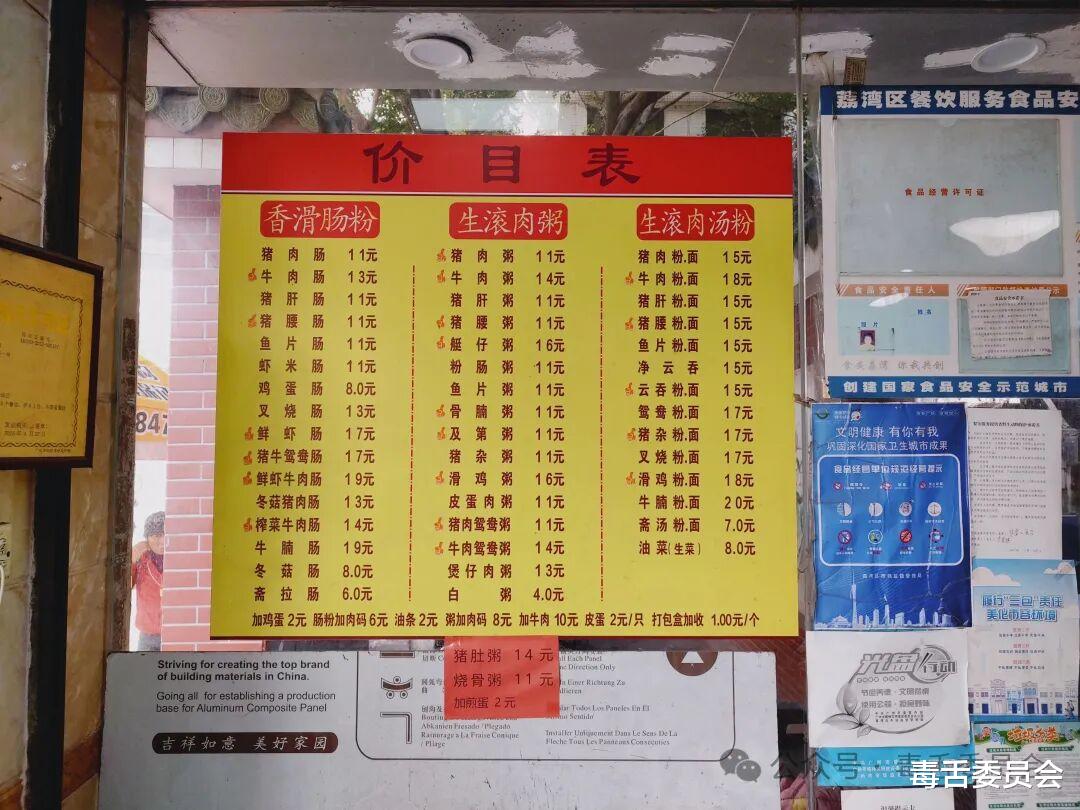 价目表
香滑肠粉
猪肉肠 11元
牛肉肠 13元
猪肝肠 11元
猪腰肠 11元
鱼片肠 11元
虾米肠 11元
鸡蛋肠 8.0元
叉烧肠 13元
鲜虾肠 17元
猪牛鸳鸯肠 17元
鲜虾牛肉肠 19元
冬菇猪肉肠 13元
榨菜牛肉肠 14元
牛腩肠 19元
冬菇肠 8.0元
斋拉肠 6.0元
生滚肉粥
猪肉粥 11元
牛肉粥 14元
猪肝粥 11元
猪腰粥 11元
艇仔粥 16元
粉肠粥 11元
鱼片粥 11元
骨腩粥 11元
及第粥 11元
猪杂粥 11元
滑鸡粥 16元
皮蛋肉粥 11元
猪肉鸳鸯粥 11元
牛肉鸳鸯粥 14元
煲仔肉粥 13元
白粥 4.0元
生滚肉汤粉
猪肉粉.面 15元
牛肉粉.面 18元
猪肝粉.面 15元
猪腰粉.面 15元
鱼片粉.面 15元
净云吞 15元
云吞粉.面 15元
鸳鸯粉.面 17元
猪杂粉.面 17元
叉烧粉.面 17元
滑鸡粉.面 18元
牛腩粉.面 20元
斋汤粉.面 7.0元
油菜(生菜) 8.0元
加鸡蛋 2元 肠粉加肉码 6元 油条 2元 粥加肉码 8元 加牛肉 10元 皮蛋 2元/只 打包盒加收 1.00元/个
猪肚粥 14元
烧骨粥 11元
加煎蛋 2元
Striving for creating the top brand
of building materials in China.
Going all for establishing a production
base for Aluminum Composite Panel
吉祥如意 美好家园
荔湾区餐饮服务食品安
食品经营许可证
食品安全责任人
姓名
照片
食安荔湾 你我共创
创建国家食品安全示范城市
文明健康 有你有我
巩固深化国家卫生城市成果
食品经营单位规范经营提示
履行“三包”责任
美化市容环境
光盘行动
公众号
毒舌委员会